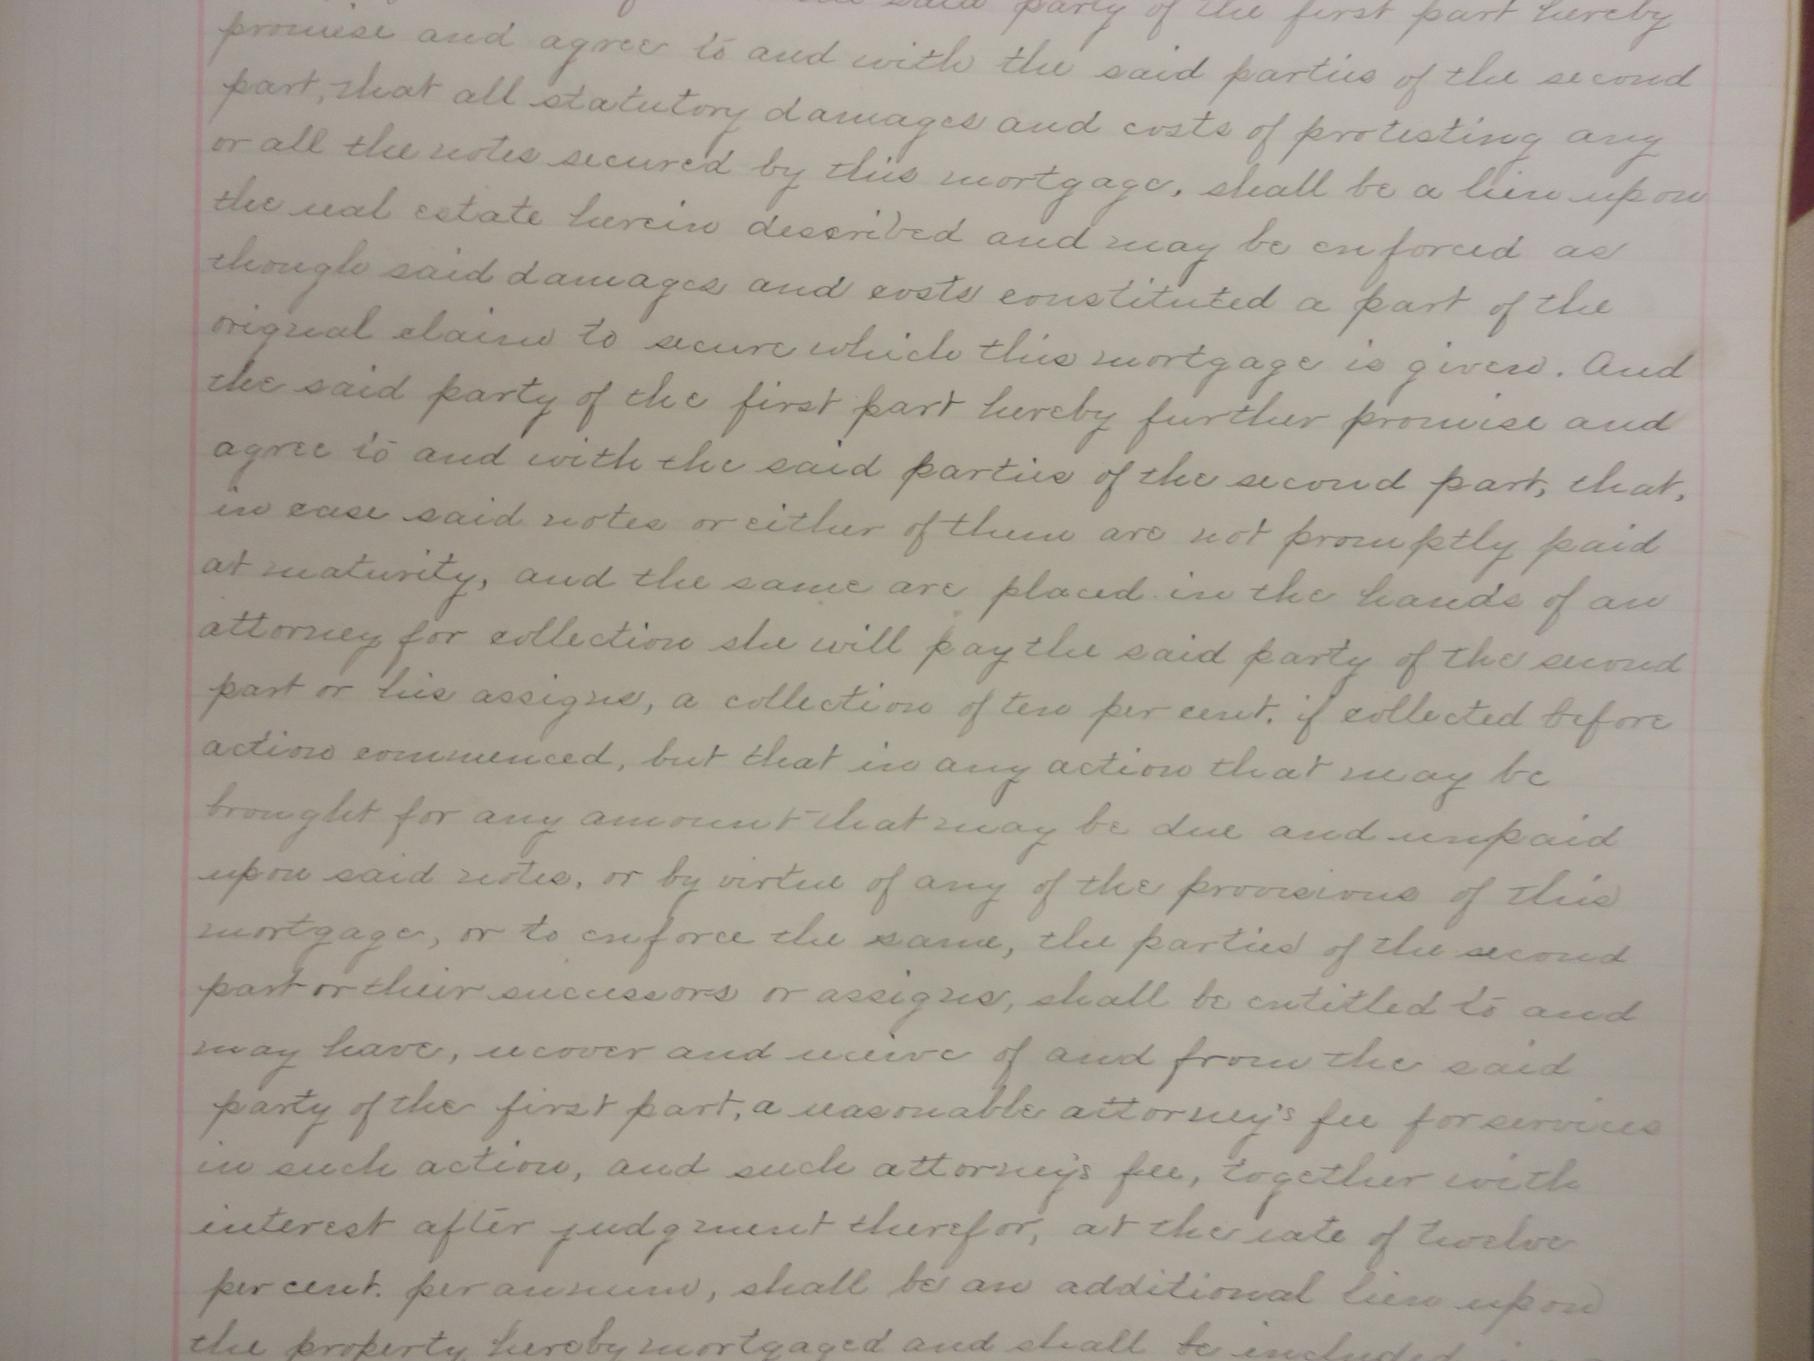 said party of the first part hereby
promise and agree to and with the said parties of the second
part, that all statutory damages and costs of protesting any
or all the notes secured by this mortgage, shall be a lien upon
the real estate herein described and may be enforced as
though said damages and costs constituted a part of the
orignal claim to secure which this mortgage is given. And
the said party of the first part hereby further promise and
agree to and with the said parties of the second part, that,
in case said notes or either of them are not promptly paid
at maturity, and the same are placed in the hands of an
attorney for collection she will pay the said party of the second
part or his assigns, a collection of ten per cent. if collected before
action commenced, but that in any action that may be
brought for any amount that may be due and unpaid
upon said notes, or by virtue of any of the provisions of this
mortgage, or to enforce the same, the parties of the second
part or their successors or assigns, shall be entitled to and
may have, recover and receive of and from the said
party of the first part, a reasonable attorney's fee for services
in such action, and such attorney's fee, together with
interest after judgment therefor, at the rate of twelve
per cent. per annum, shall be an additional lien upon
the property hereby mortgaged and shall be included